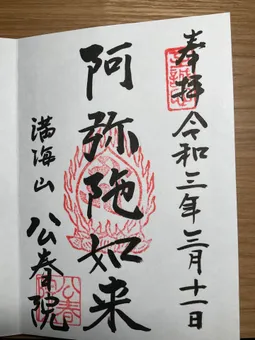 奉拝
令和三年三月十一日
阿弥陀如来
満海山
公春院